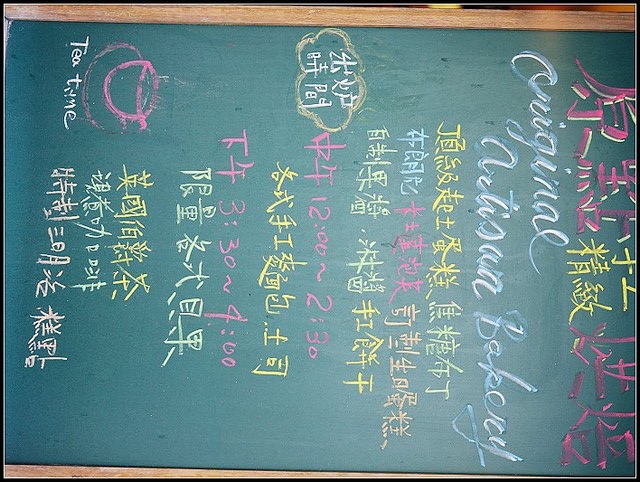 原點手工精緻烘焙
original
Artisan Bakery
頂級起士蛋糕、焦糖布丁
布朗尼 卡士達泡芙 訂制生日蛋糕、
自制果醬.抹醬 手工餅干
出炉時間
中午 12:00~2:30
各式手工麵包.土司
下午 3:30~4:00
限量各式貝果
Tea time
英國伯爵茶
咖啡
特制三明治 糕點